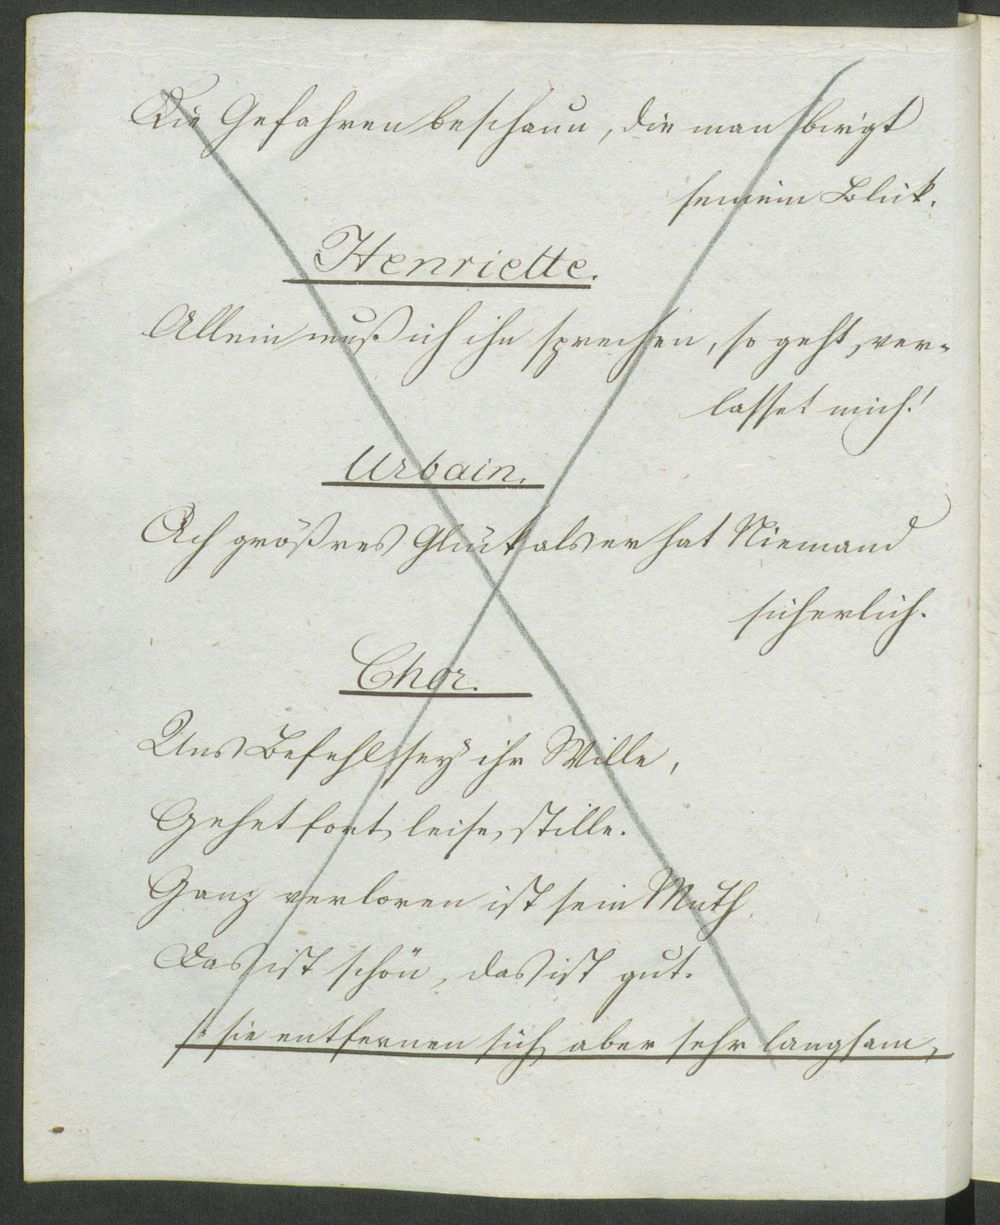 Die Gefahren beschaun, die man birgt
seinem Blick.
Henriette.
Allein muß ich ihn sprechen, so geht, ver-
lasset mich!
Urbain.
Ach größres Glück als er hat Niemand
sicherlich.
Chor.
Uns Befehl sey ihr Wille,
Gehet fort, leise, stille.
Ganz verloren ist sein Muth
Das ist schön, das ist gut.
/: sie entfernen sich, aber sehr langsam,